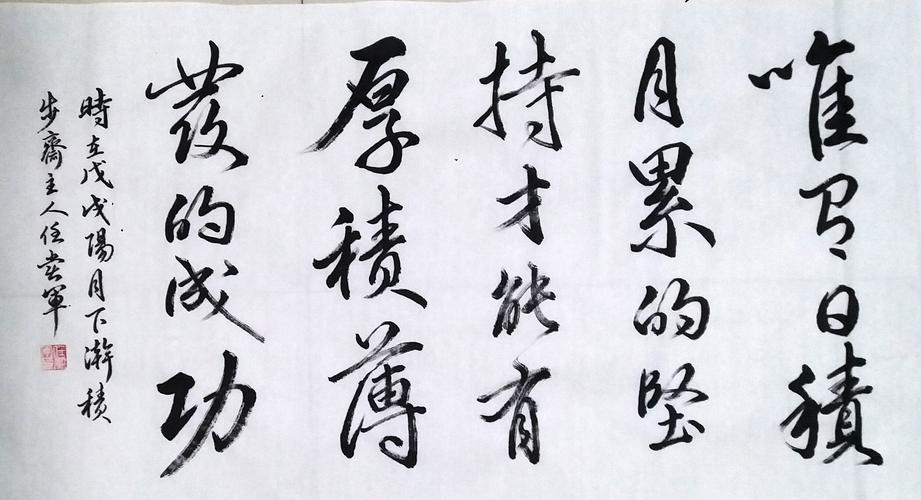 唯有日積
月累的堅
持才能有
厚積薄
發的成功
時在戊戌陽月下澣積
步齋主人任崇軍